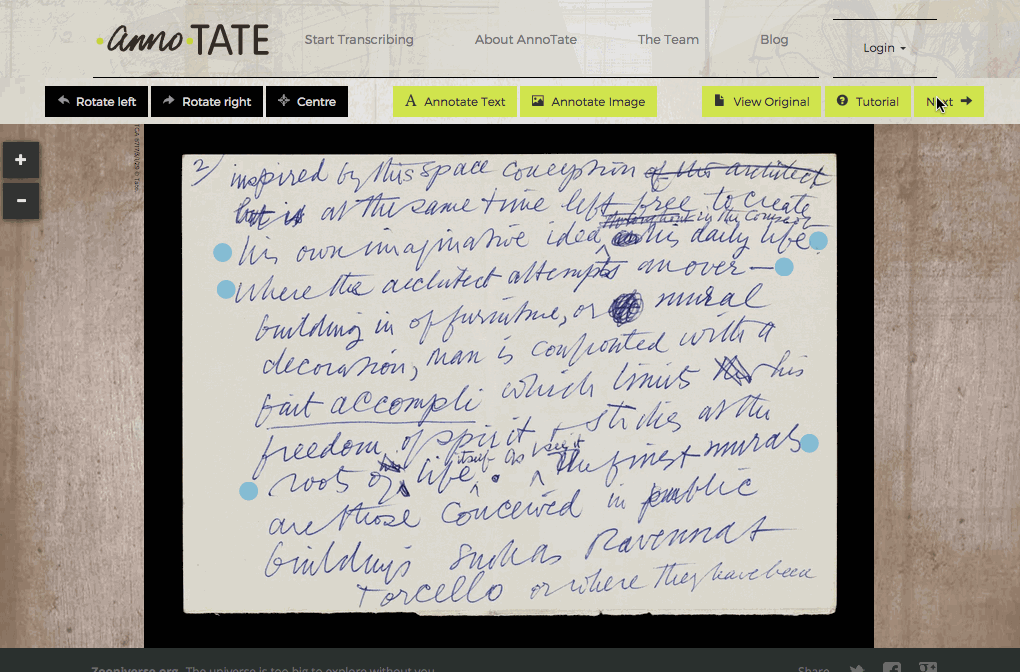 anno•TATE
Start Transcribing
About AnnoTate
The Team
Blog
Login
Rotate left
Rotate right
Centre
Annotate Text
Annotate Image
View Original
Tutorial
Next
+
-
2) inspired by this space conception of this architect
but is at the same time left free to create
in the
his own imaginative idea his daily life
Where the architect attempts an over—
building in of furniture, or mural
decoration, man is confronted with a
fait accompli which limits his
freedom of spirit + strikes at the
itself as I see it
root of life. The finest murals
are those conceived in public
buildings such as Ravenna +
Torcello or where they have been
Zooniverse.org The universe is too big to explore without you.
Share